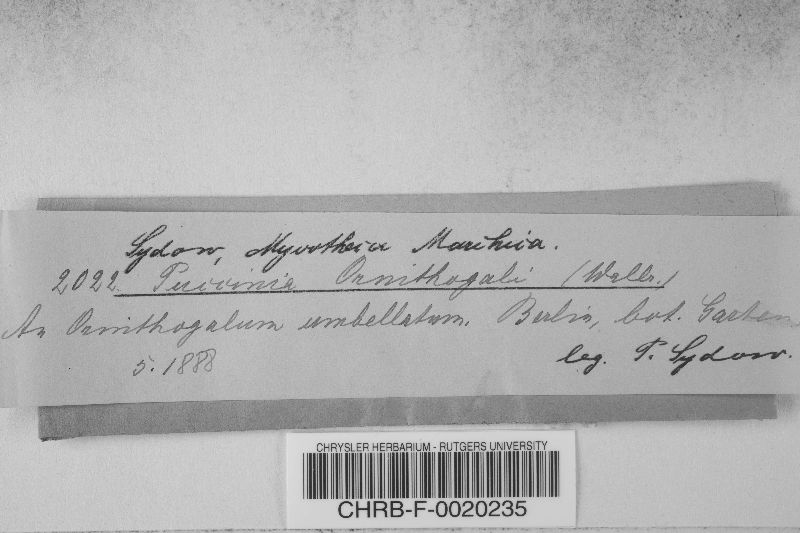 Sydow, Mycotheca Marchica.
2022. Puccinia Ornithogali (Wallr.)
An Ornithogalum umbellatum. Berlin, bot. Garten
5. 1888
leg. P. Sydow.
CHRYSLER HERBARIUM - RUTGERS UNIVERSITY
CHRB-F-0020235